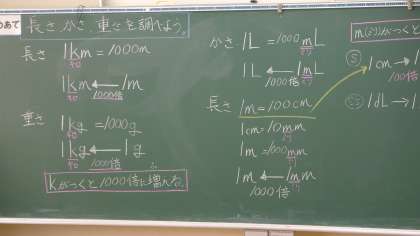 めあて 長さ、かさ、重さを調べよう。
長さ 1km=1000m
キロ
1km←1m
1000倍
重さ 1kg=1000g
キロ
1kg←1g
キロ 1000倍
kがつくと1000倍に増える。
かさ 1L=1000mL
ミリ
1L←1mL
1000倍 ミリ
長さ 1m=100cm
1cm=10mm
ミリ
1m=1000mm
ミリ
1m←1mm
1000倍 ミリ
m(ミリ)が
1cm→1
100倍
1dL→